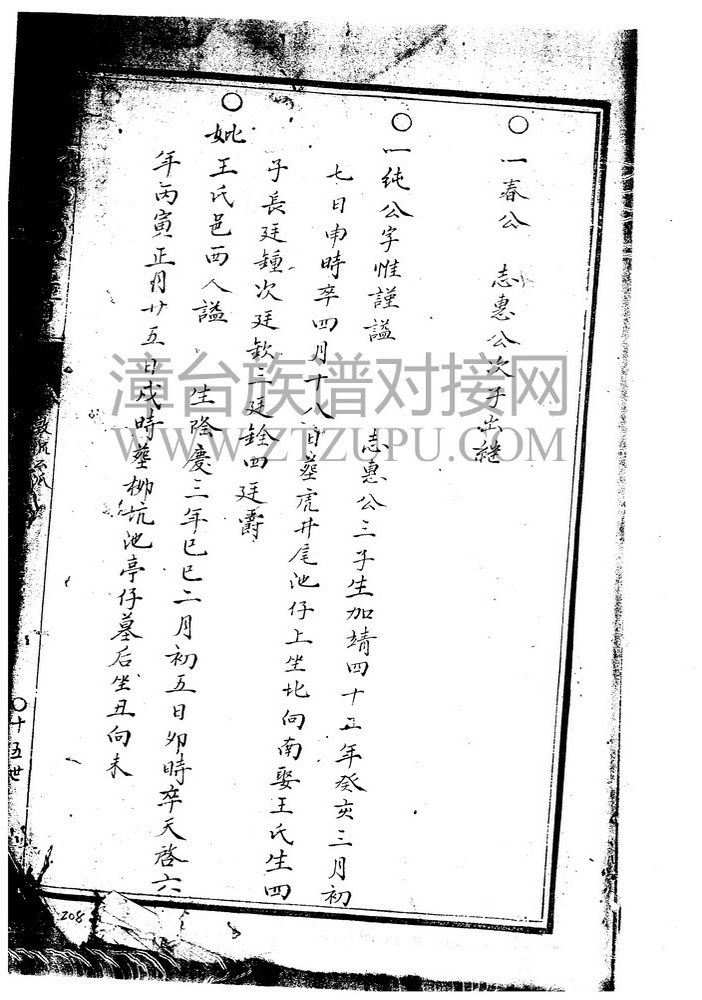 ○一春公 志惠公次子出継
○一纯公字惟謹謚 志惠公三子生加靖四十五年癸亥三月初
七日申時卒四月十八日塟虎井尾池仔上坐北向南娶王氏生四
子長廷鍾次廷欽三廷銓四廷爵
○妣王氏邑西人謚 生隆慶三年巳巳二月初五日夘時卒天啓六
年丙寅正月廿五日戌時塟栁坑池亭仔墓后坐丑向未
○十五世
208
漳台族谱对接网
WWW.ZTZUPU.COM